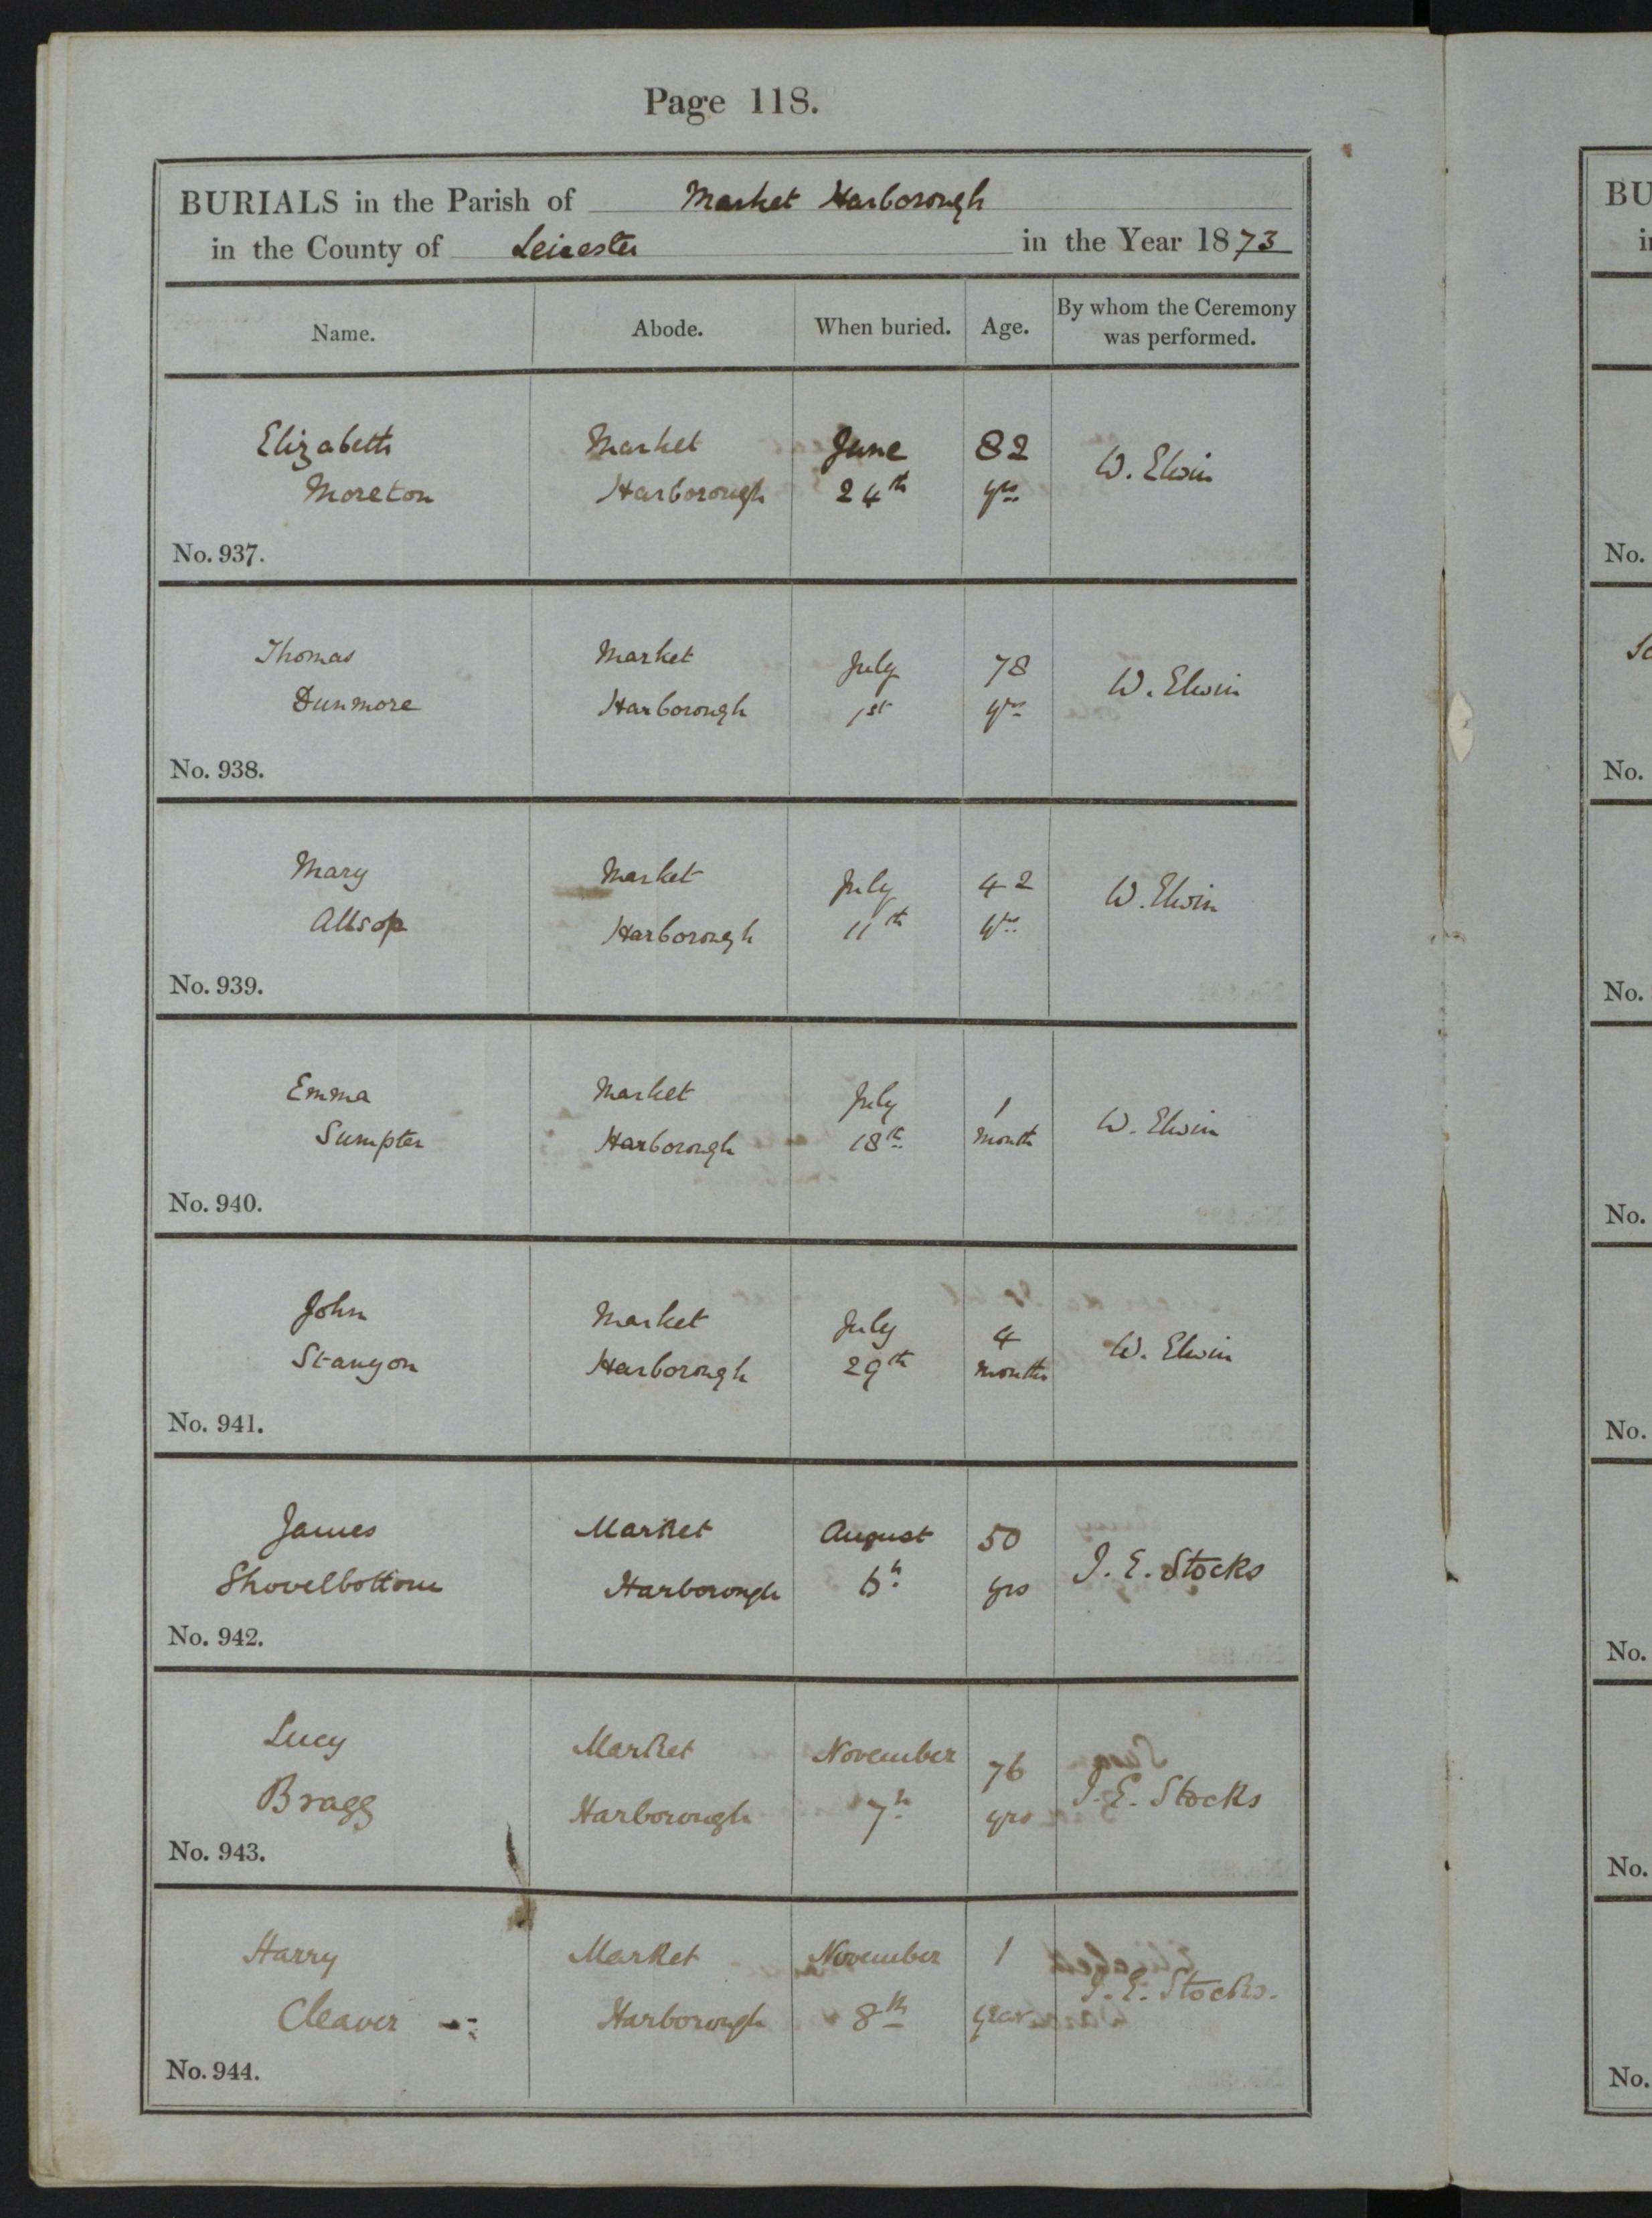 Page 118.
BURIALS in the Parish of Market Harborough
in the County of Leicester in the Year 1873
Name. Abode. When buried. Age. By whom the Ceremony was performed.
Elizabeth Market June 82 W. Elwin
Moreton Harborough 24th yrs
No. 937.
Thomas Market July 78 W. Elwin
Dunmore Harborough 1st yrs
No. 938.
Mary Market July 42 W. Elwin
Allsop Harborough 11th yrs
No. 939.
Emma Market July 1 W. Elwin
Sumpter Harborough 18th month
No. 940.
John Market July 4 W. Elwin
Stanyon Harborough 29th months
No. 941.
James Market August 50 J. E. Stocks
Shovelbottom Harborough yrs
No. 942.
Lucy Market November 76 J. E. Stocks
Bragg Harborough 7th yrs
No. 943.
Harry Market November 1 J. E. Stocks.
Cleaver Harborough 8th year
No. 944.
BU
in
No.
No.
No.
No.
No.
No.
No.
No.